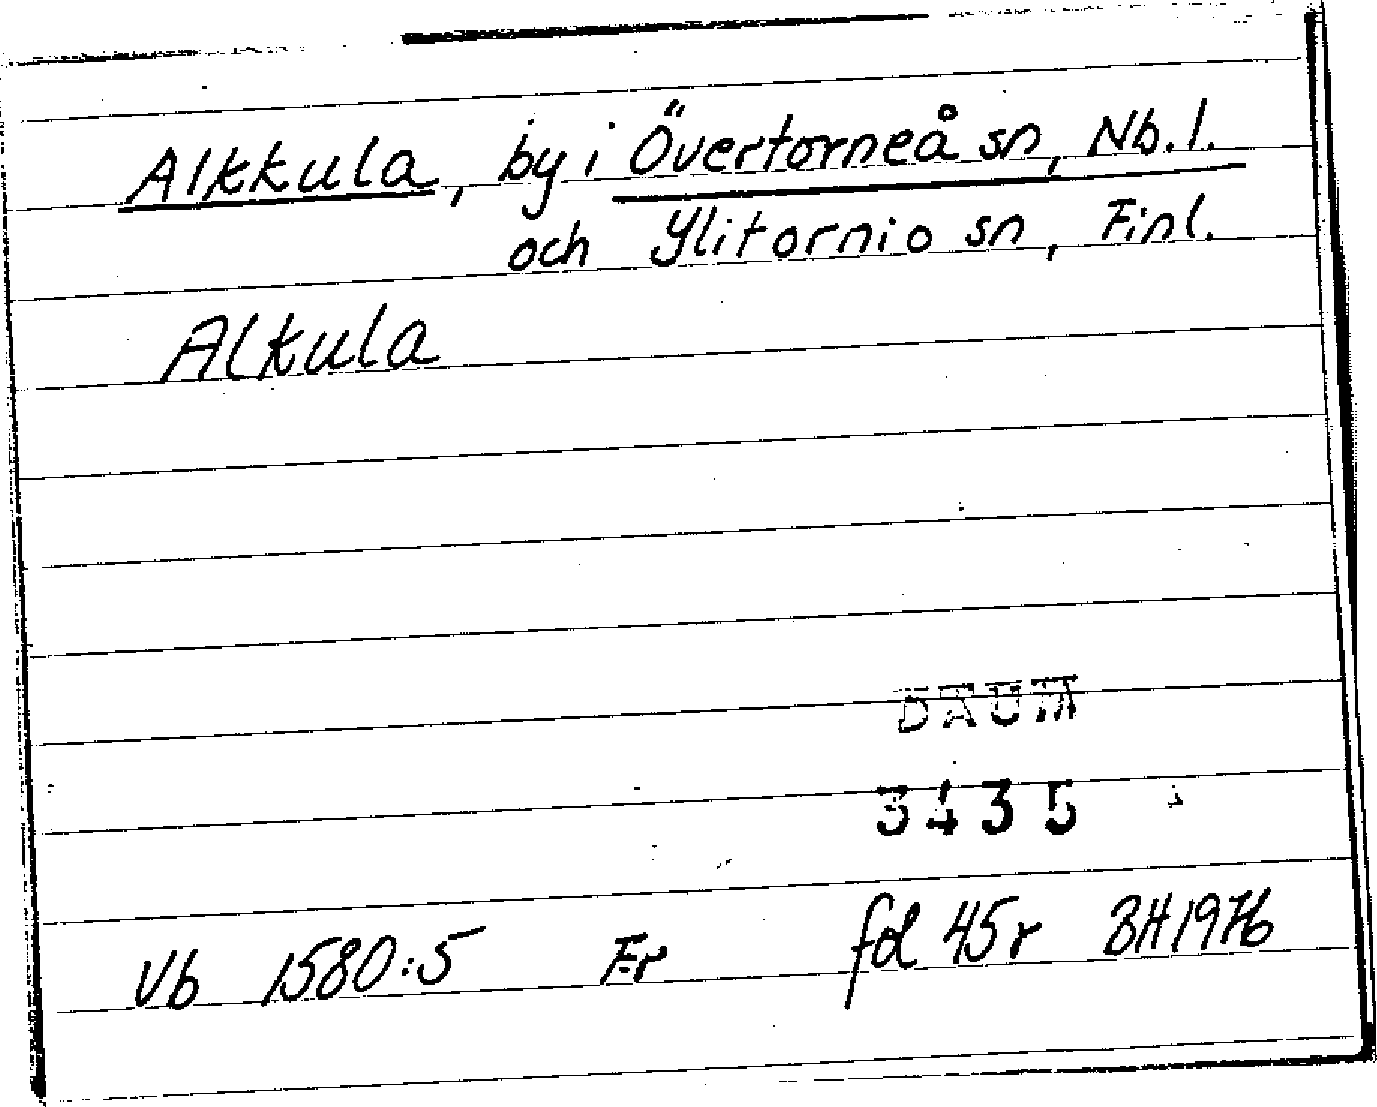 Alkkula, by i Övertorneå sn, Nb.l.
och Ylitornio sn, Finl.
Alkula
DAUM
3435
Vb 1580:5 Fr fol 45r BH1976